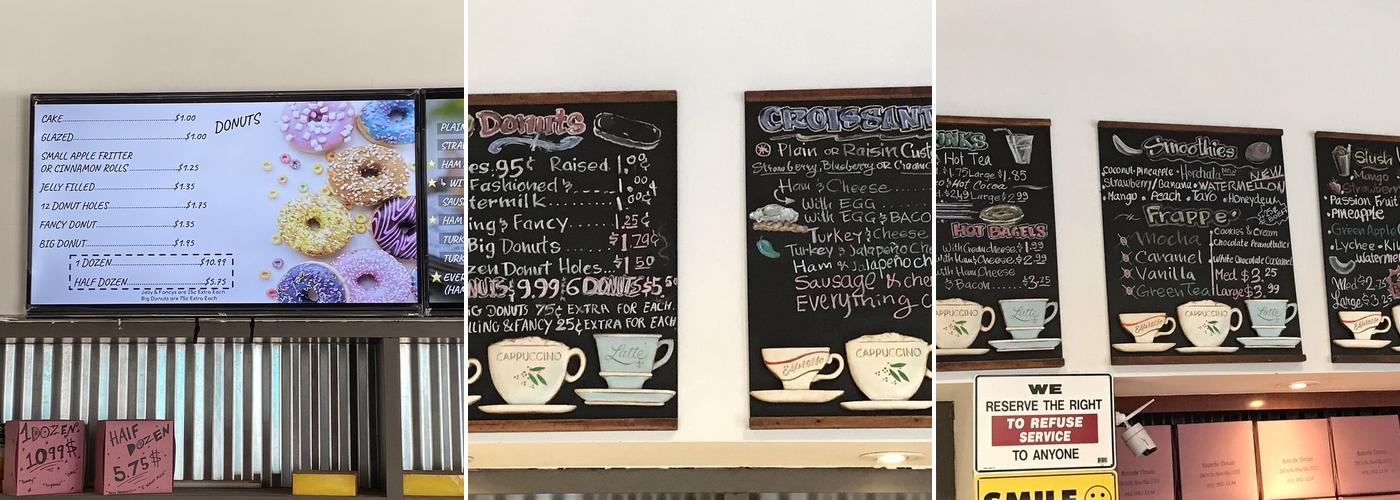 DONUTS
CAKE..........$1.00
GLAZED..........$1.00
SMALL APPLE FRITTER
OR CINNAMON ROLLS..........$1.25
JELLY FILLED..........$1.35
12 DONUT HOLES..........$1.75
FANCY DONUT..........$1.35
BIG DONUT..........$1.95
1 DOZEN..........$10.99
HALF DOZEN..........$5.75
Jelly & Fancys are 25¢ Extra Each
Big Donuts are 75¢ Extra Each
PLAIN
HAM
TURK
1 DOZEN:
10.99$
HALF
DOZEN
5.75$
Donuts
es.95¢ Raised 1.00¢
Fashioned
termilk
ing & Fancy 1.25¢
Big Donuts $1.79¢
zen Donut Holes...$1.50
NUTS $9.99 6 DONUTS $5.50
G DONUTS 75¢ EXTRA FOR EACH
LLING & FANCY 25¢ EXTRA FOR EACH
CAPPUCCINO
Latte
CROISSANT
Plain or Raisin Cust
Strawberry, Blueberry or Cream C
Ham & Cheese
With EGG
With EGG & BACO
Turkey & Cheese
Turkey & Jalapeño Che
Ham & Jalapeño ch
Sausage & chee
Everything C
Espresso
CAPPUCCINO
NKS
Hot Tea
$1.75 Large $1.85
Hot Cocoa
$2.49 Large $2.99
HOT BAGELS
With Cream cheese $1.99
with Ham Cheese
& Bacon $3.25
CAPPUCCINO
Latte
Smoothies
Coconut-Pineapple • Horchata NEW
Strawberry/Banana • WATERMELON
• Mango • Peach • Taro • Honeydew
Frappe:
Mocha
Caramel
Vanilla
Green Tea
Cookies & Cream
Chocolate Peanutbutter
White Chocolate Caramel
Med $3.25
Large $3.99
Espresso
CAPPUCCINO
Latte
Slush
Mango
Strawberry
• Passion Fruit
• Pineapple
• Green Apple
• Lychee • Ki
Watermel
Med $2.75
Large $3.25
Espresso
WE
RESERVE THE RIGHT
TO REFUSE
SERVICE
TO ANYONE
SMILE